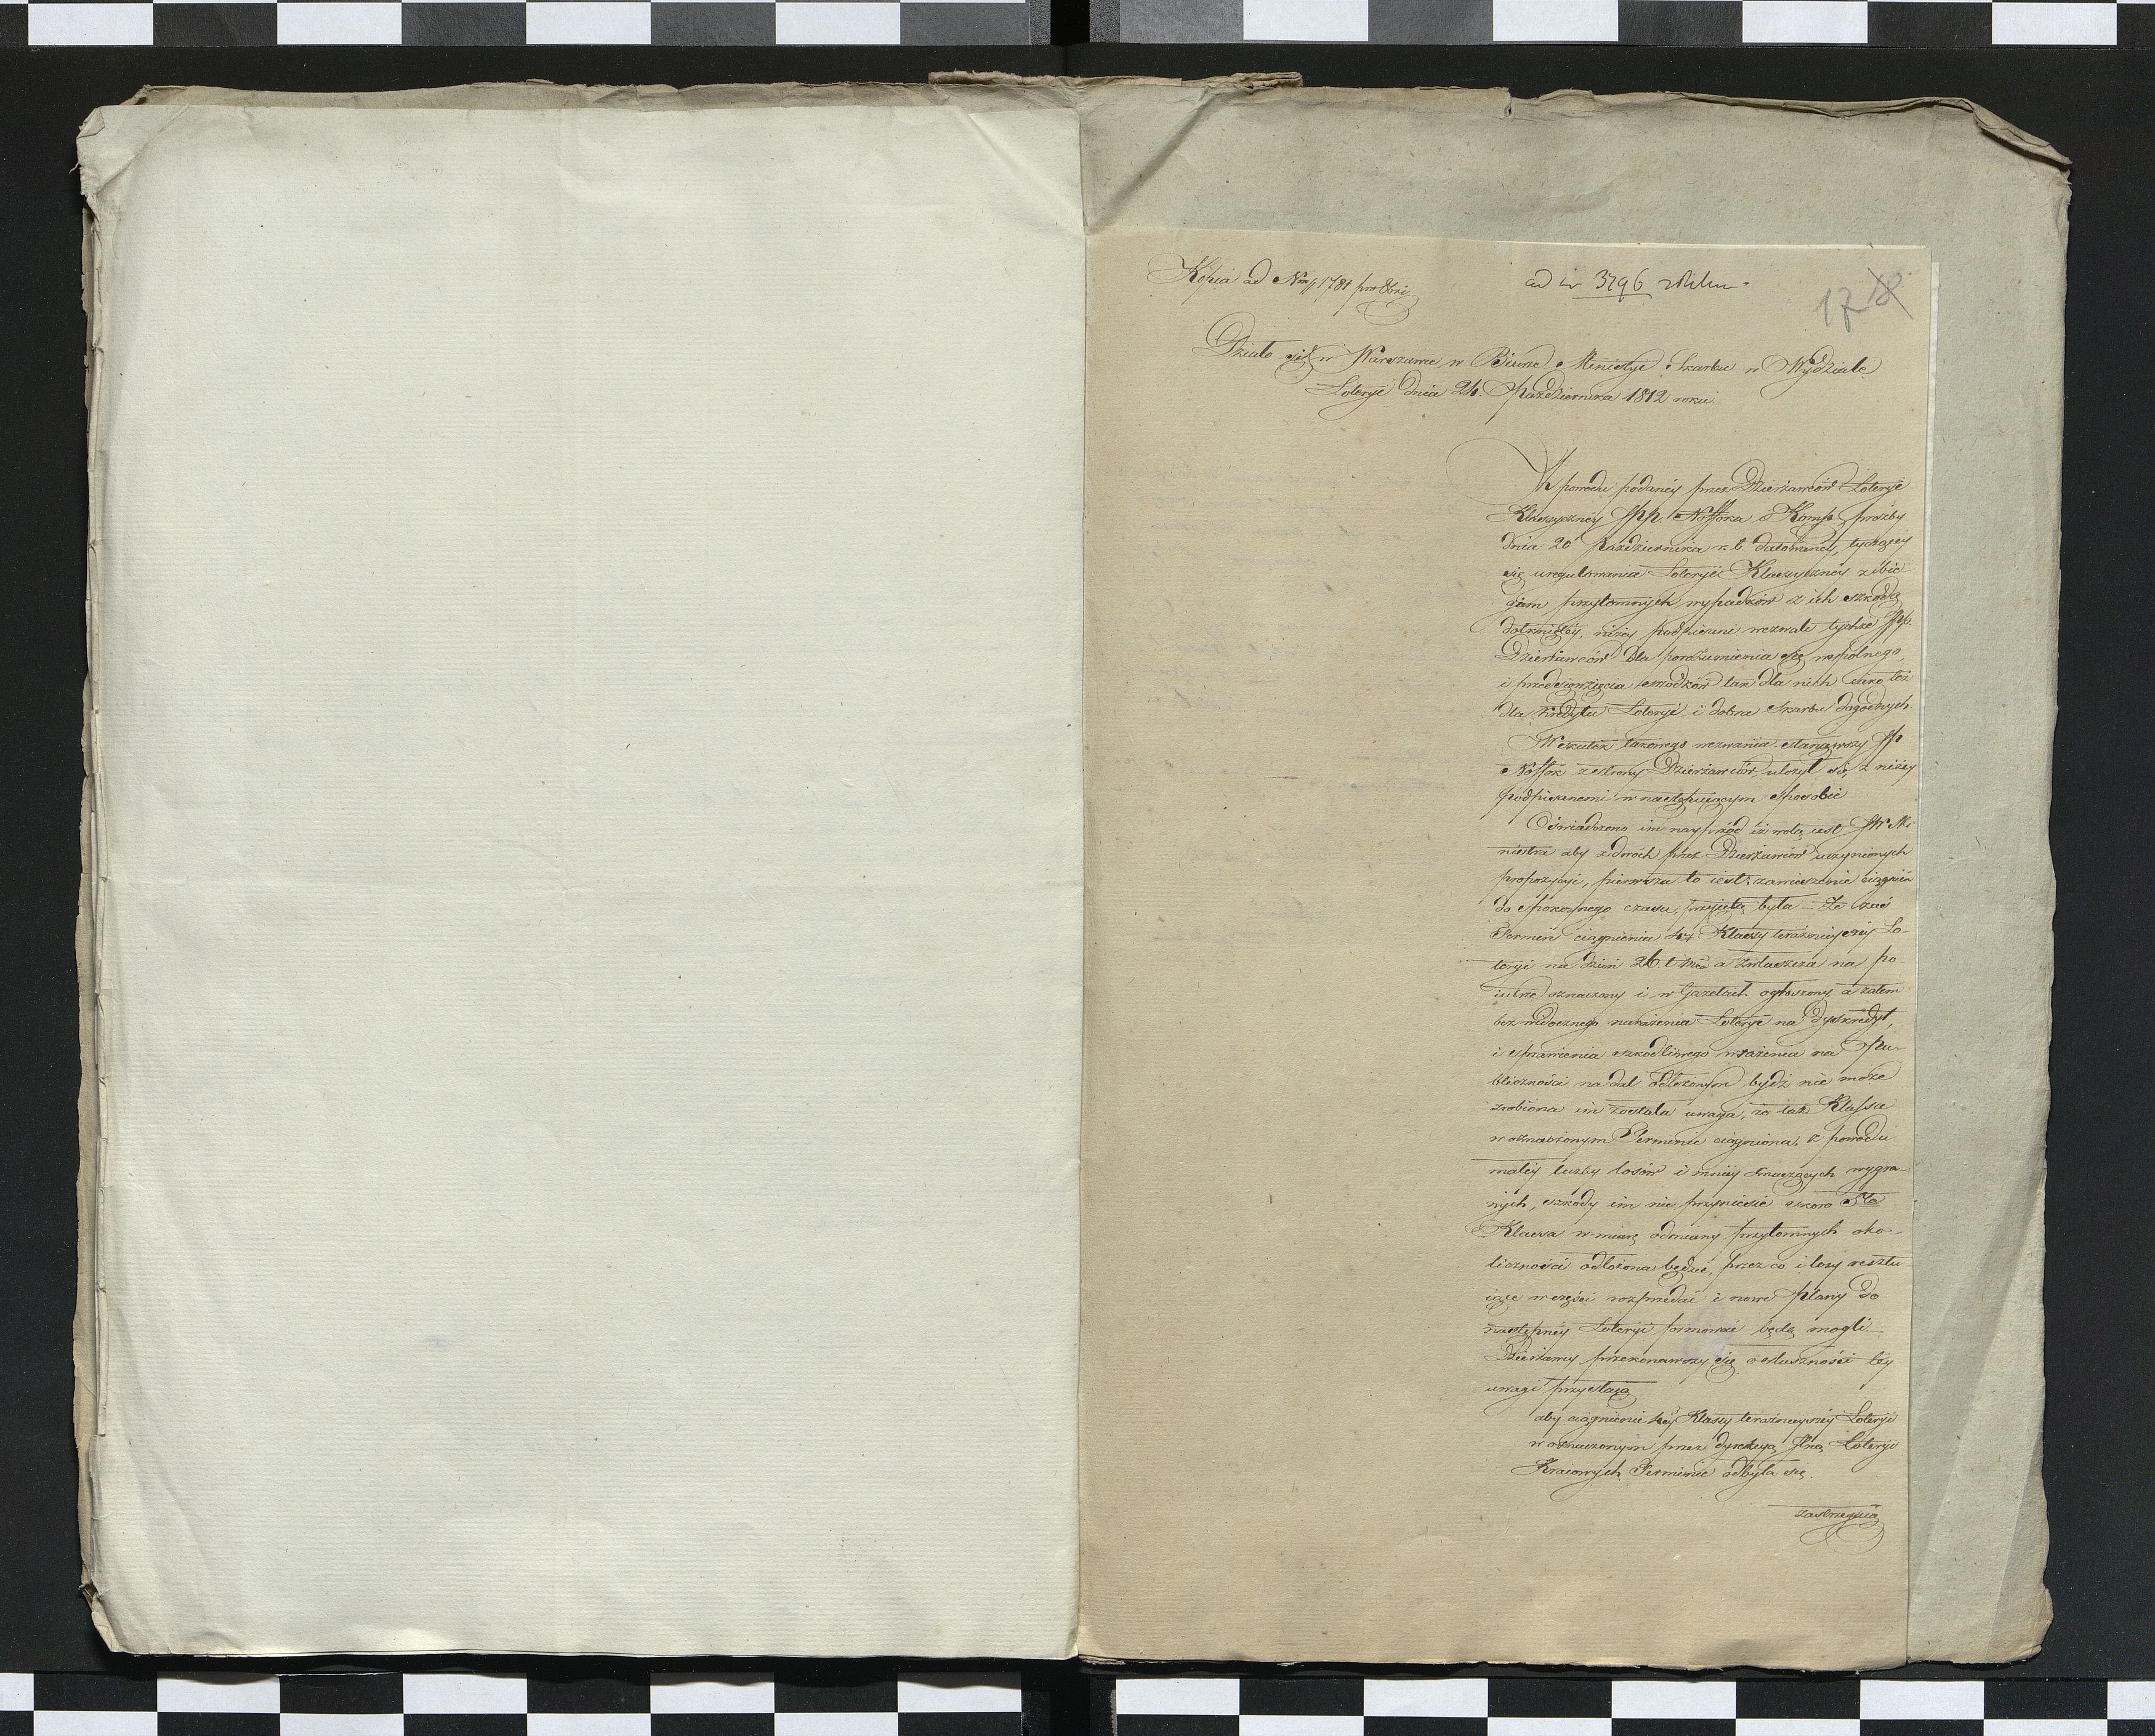 Kopia ad Nrm 1781
ad Nr 3796
17 18
Działo się w Warszawie w Biurze Ministra Skarbu w Wydziale
Loteryi dnia 24. Października 1812 roku
W powodu podanéy przez Dzierżawców Loteryi
Klassyczney JPP. Noffoka i Komp. prożby
dnia 20 Października r. b. datowaney, tyczącey
się uregulowania Loteryi Klassyczney zbie
giem przytomnych wypadków z ich szkodą
dotknietéy, niżéy podpisani wezwali tychże JPP.
Dzierżawców dla porozumienia się wspolnego,
i przedsięwzięcia srzodków tak dla nich iako też
dla kredytu Loteryi i dobra Skarbu dogodnych
W skutek takowego wezwania stanąwszy JP
Noffok z strony Dzierżawców, ułożył się z niżéy
podpisanemi w następuiącym sposobie
Oświadczono im nayprzód iż wolą iest JW Mi
nistra aby z dwóch przez Dzierżawców uczynionych
propozycyi, pierwsza to iest: zawieszenie ciągnień
do spokoynego czasu, przyiętą była – Że zaś
Termin ciągnienia 4téy Klassy teraznieyszéy Lo-
teryi na dzień 26 t. mca a zwłaszcza na po
iutrze oznaczony i w Gazetach ogłoszony a zatem
bez widocznego narażenia Loteryi na dyskredyt,
i sprawienia szkodliwego wrażenia na Pu-
bliczności na dal odłożonym bydź nie może
zrobiona im została uwaga, że taż Klassa
w oznaczonym Terminie ciągniona, z powodu
małéy liczby losów i mniéy znaczących wygra
nych, szkody im nie przyniesie skoro 5ta
Klassa w miarę odmiany przytomnych oko-
liczności odłożona będzie, przez co i losy resztu
iące w części rozprzedać i nowe plany do
następnéy Loteryi formować będą mogli –
Dzierżawcy przekonawszy się o słuszności téy
uwagi przystaią
aby ciągnienie 4téy Klassy teraznieyszéy Loteryi
w oznaczonym przez dyrekcyą Jlną Loteryi
Kraiowych Terminie odbyła się.
zastrzegaią